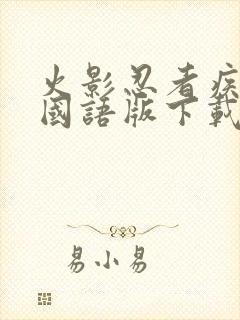 火影忍者疾
國語版下載
易小易